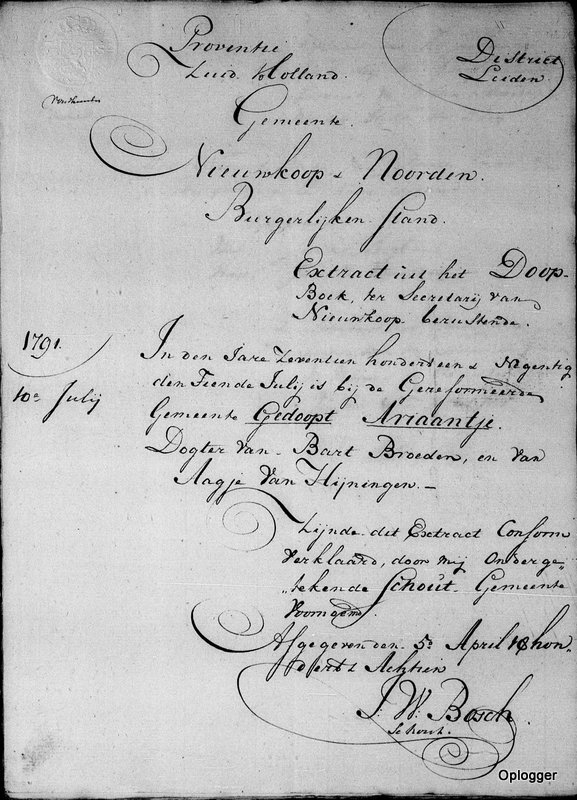 Proventie
Zuid Holland.
District
Leiden
Gemeente.
Nieuwkoop & Noorden.
Burgerlijken Stand.
Extract uit het Doop-
Boek, ter Secretarij van
Nieuwkoop berustende.
1791.
10e Julij
In den Jare Zeventien honderd een & Negentig
den Tiende Julij is bij de Gereformeerde
Gemeente Gedoopt Ariaantje.
Dogter van Bart Broeden, en van
Aagje van Hijningen.—
Zijnde dit Extract Conform
Verklaard, door mij Onderge„
„tekende Schout Gemeente
voorngemd.
Afgegeven den 5e April 18 hon„
derd & Achtien
J: W: Bosch
Schout.
Oplogger